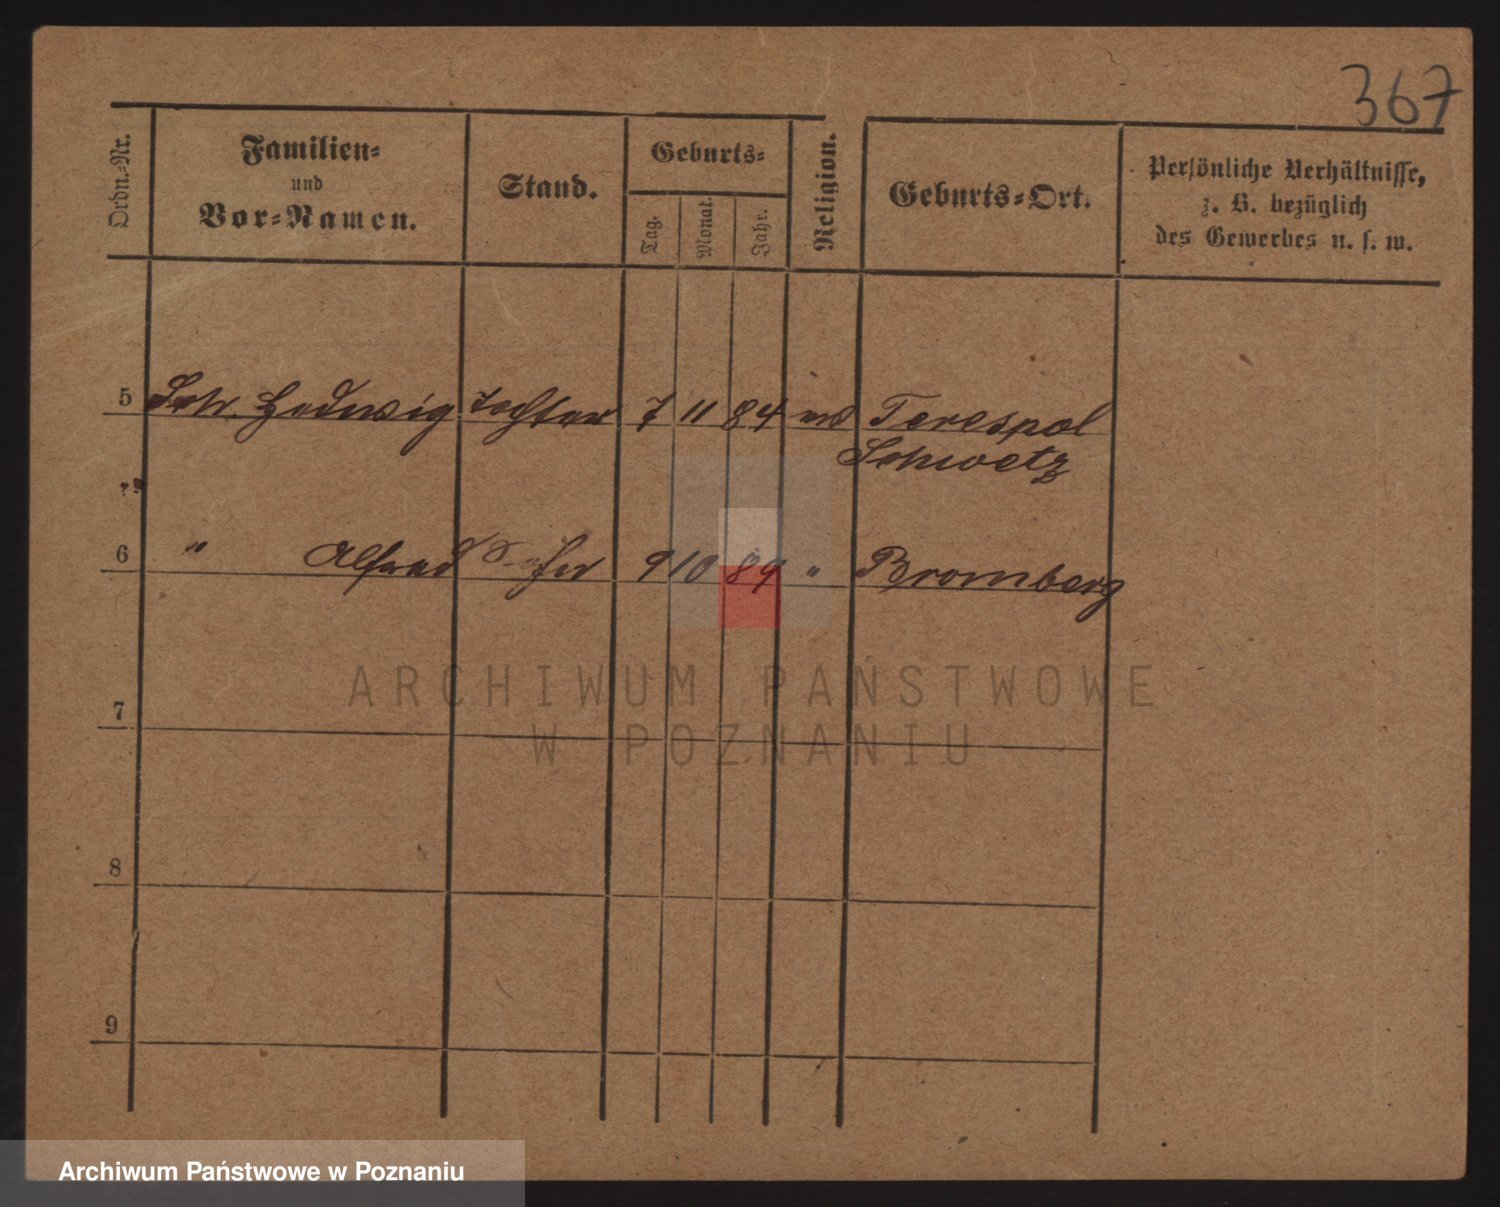 367
Ordn.-Nr. Familien- und Vor-Namen. Stand. Geburts- Tag. Monat. Jahr. Religion. Geburts-Ort. Persönliche Verhältnisse, z. B. bezüglich des Gewerbes u. s. w.
5 Sch. Hedwig Tochter 7 11 84 Terespol
Schwetz
6 " Alfred 9 10 89 " Bromberg
7
8
9
ARCHIWUM PAŃSTWOWE
W POZNANIU
Archiwum Państwowe w Poznaniu